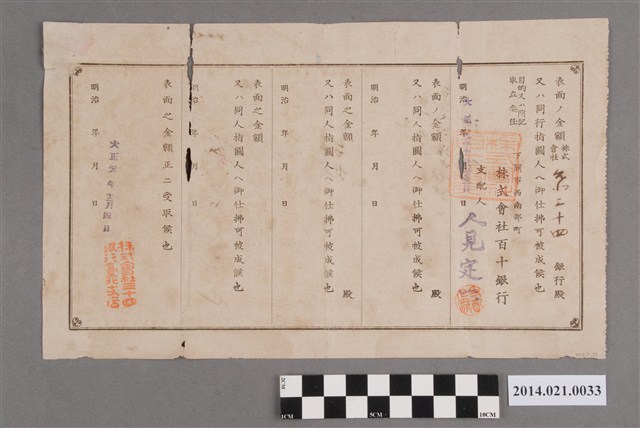 表面ノ金額 株式會社 第三十四 銀行殿
又ハ同行指圖人ヘ御仕拂可被成候也
目的又ハ附記 取立委任
明治 年 月 日
下關市西南部町
株式會社百十銀行
支配人 人見定
表面ノ金額 殿
又ハ同人指圖人ヘ御仕拂可被成候也
明治 年 月 日
表面之金額 殿
又ハ同人指圖人ヘ御仕拂可被成候也
明治 年 月 日
表面之金額
又ハ同人指圖人ヘ御仕拂可被成候也
明治 年 月 日
表面之金額正ニ受取候也
明治 年 月 日
2CM
1CM
5CM
10CM
2014.021.0033